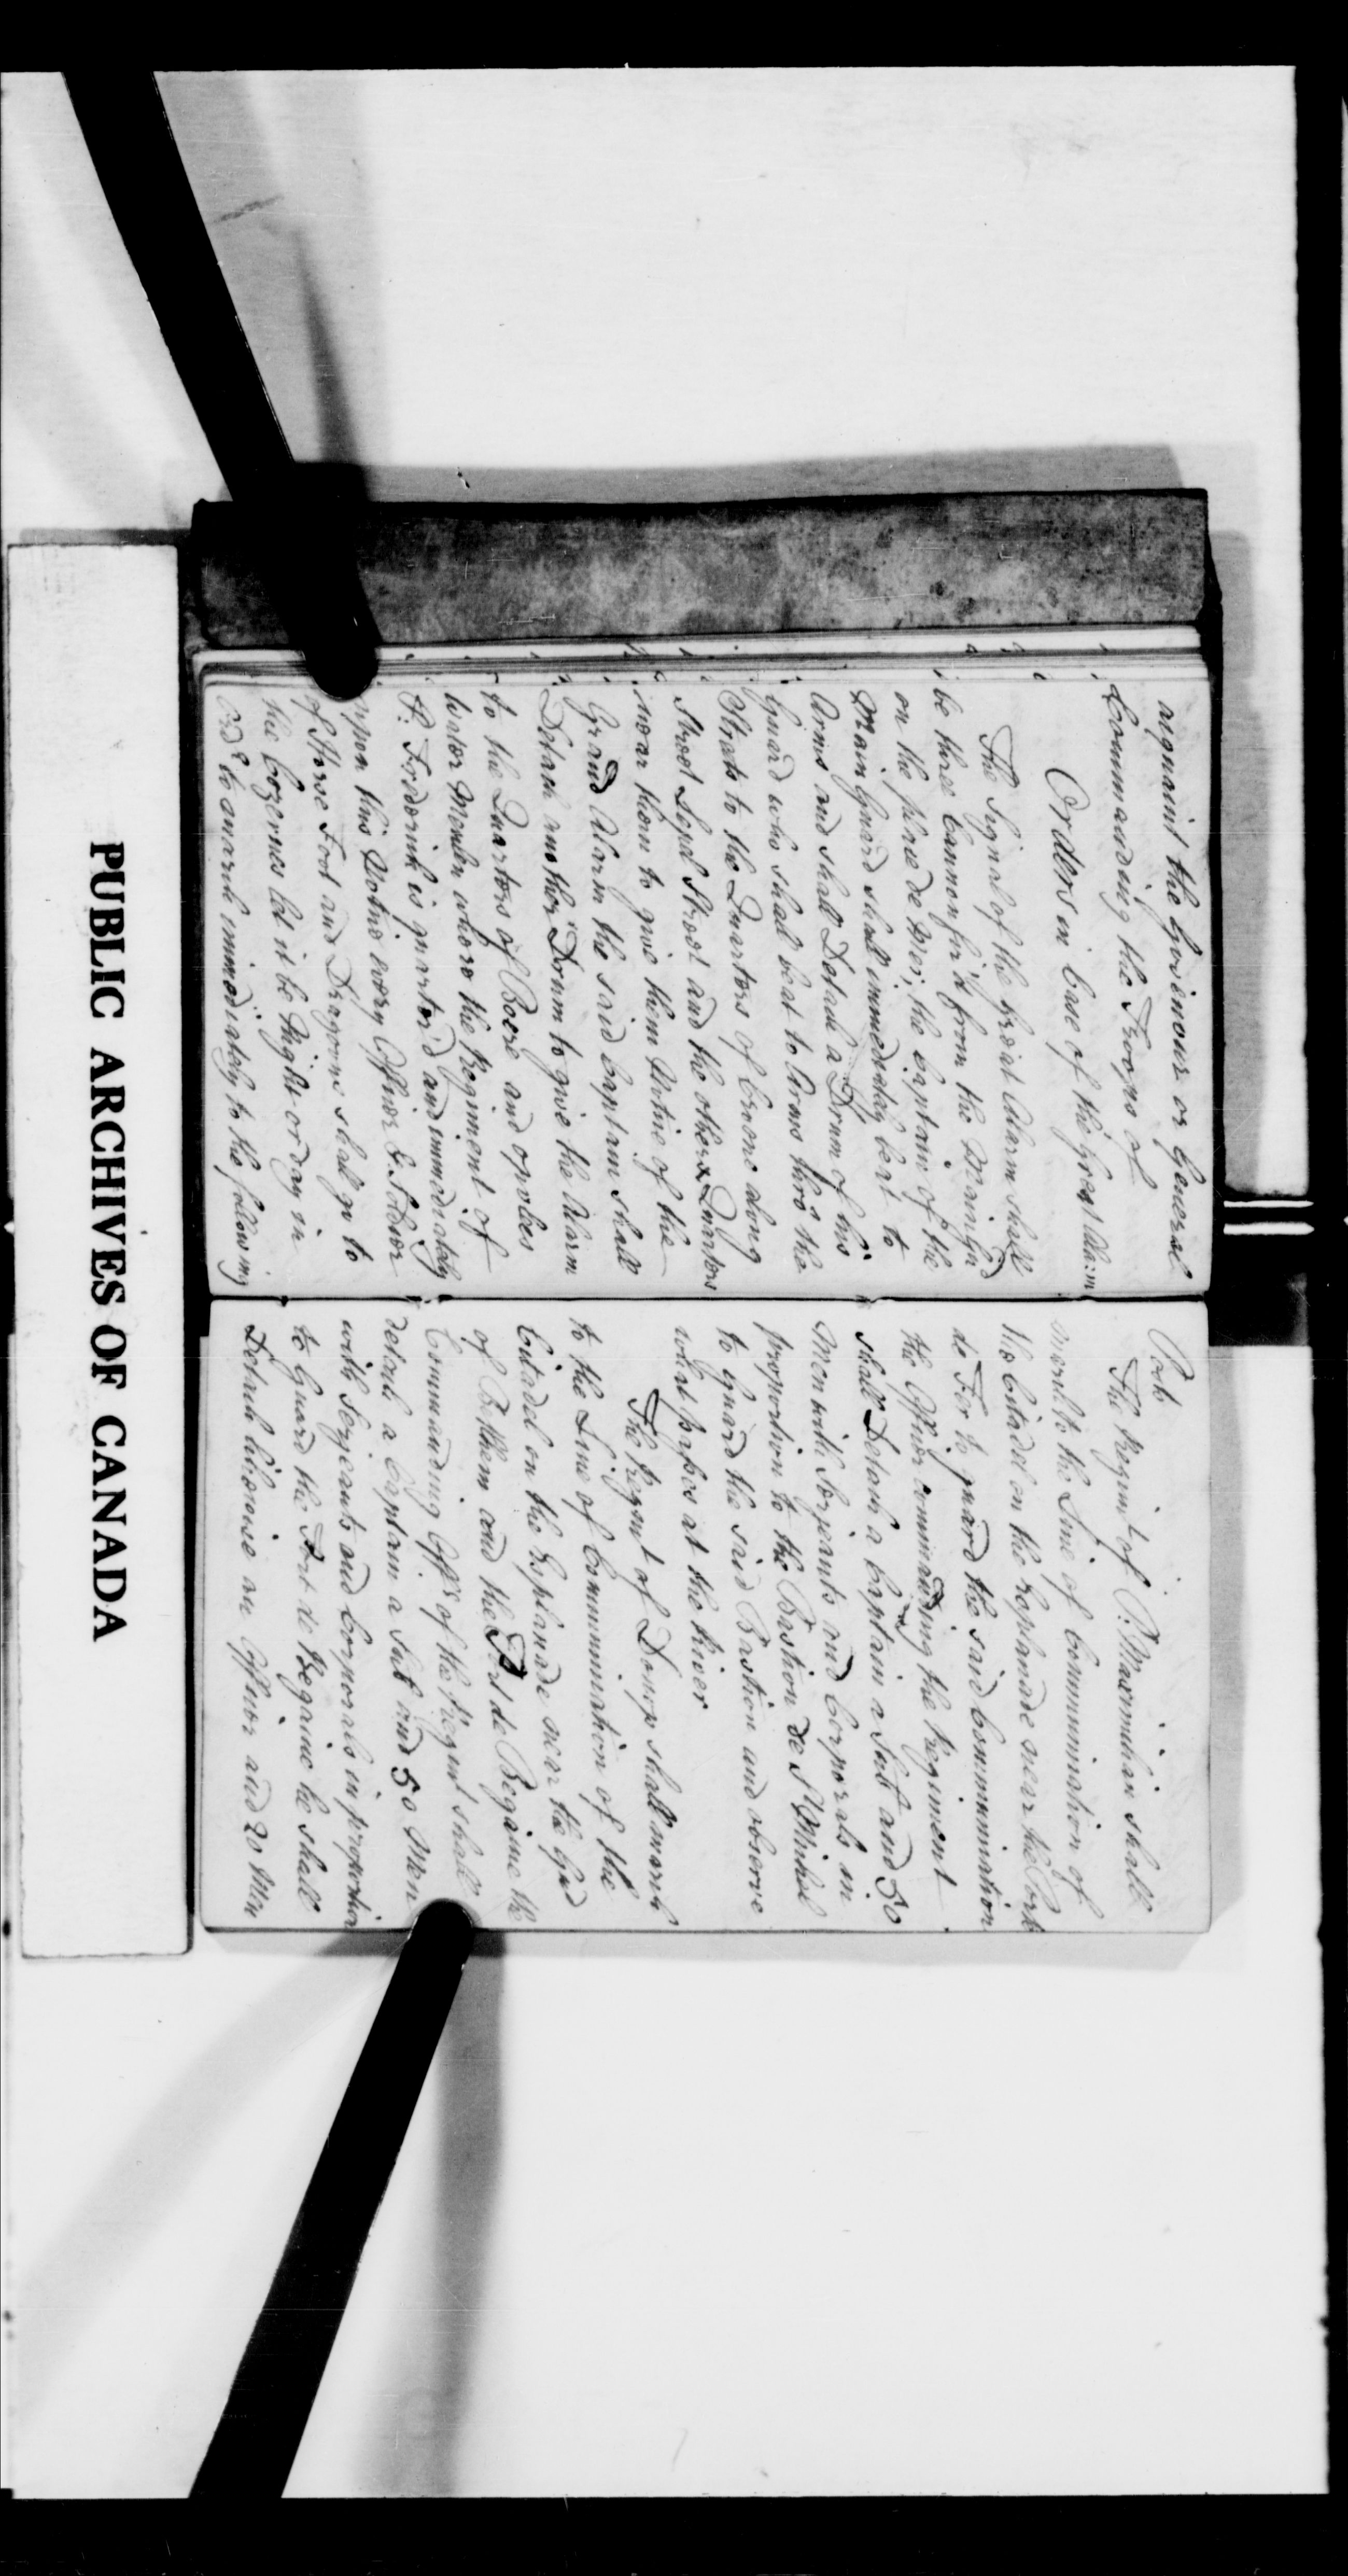 aiqnaint the Governour or General
Commanding the Troops of
Orders in Case of the Great Alarm
The Signal of the great Alarm shall
be three Cannon fir'd from the Main G:d
on the place de Mer; the Captain of the
Main Guard shall immediately beat to
Arms and shall Detach a Drum of his
Guard who shall beat to Arms thro' the
Streets to the Quarters of along
Street Loyd Street and the other Quarters
near them to give them Notice of the
Grand Alarm the said Captain shall
Detach another Drum to give the Alarm
to the Quarters of and
water where the Regiment of
P: Frederick is quarter'd and immediately
upon this Notice every Officer & Soldier
of Horse Foot and Dragoons shall go to
the Cazernes let it be Night or day in
ord:r to march immediately to the following
Posts
The Regim:t of P: shall
march to the Line of Communication of
the Citadel on the Esplanade near the Port
de Fer to guard the said Communication
the Officer commanding the Regiment
shall Detach a Captain a Sub and 50
Men with Serjeants and Corporals in
proportion to the Bastion de St Michel
to Guard the said Bastion and observe
what passes at the River
The Regm:t of Donop shall march
to the Line of Communication of the
Citadel on the Esplanade near the G:d
of and the Port de Begaine the
Commanding Off:r of the Regm:t shall
detach a Captain a Sub and 50 Men
with Serjeants and Corporals in proportion
to Guard the Port de Begaine he shall
Detach likewise an Officer and 20 Men
PUBLIC ARCHIVES OF CANADA